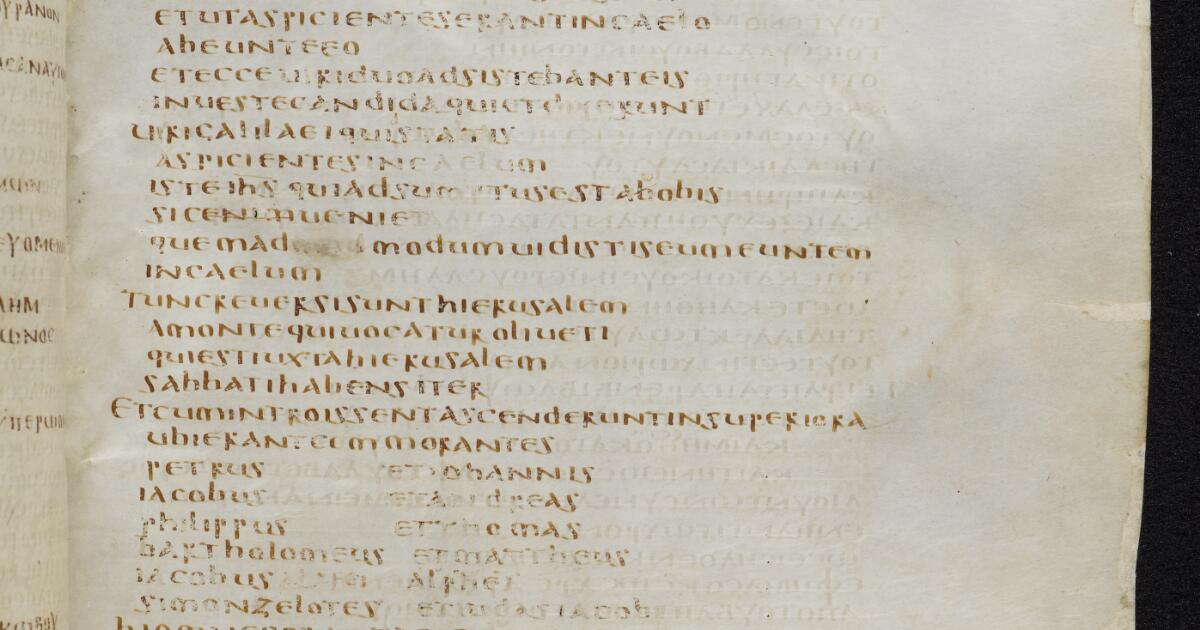 ETUTASPICIENTESERANTINCAELO
ABEUNTEEO
ETECCEUIRIDUOADSISTEBANTEIS
INUESTECANDIDAQUIETDIXERUNT
UIRIGALILAEIQUISTATIS
ASPICIENTESINCAELUM
ISTEIHSQUIADSUMPTUSESTABOBIS
SICENIMUENIET
QUEMADMODUMUIDISTISEUMEUNTEM
INCAELUM
TUNCREUERSISUNTHIERUSALEM
AMONTEQUIUOCATUROLIUETI
QUIESTIUXTAHIERUSALEM
SABBATIHABENSITER
ETCUMINTROISSENTASCENDERUNTINSUPERIORA
UBIERANTCOMMORANTES
PETRUS ETIOHANNIS
IACOBUS ETANDREAS
PHILIPPUS ETTHOMAS
BARTHOLOMEUS ETMATTHEUS
IACOBUS ALPHEI
SIMONZELOTES ETIUDASIACOBI